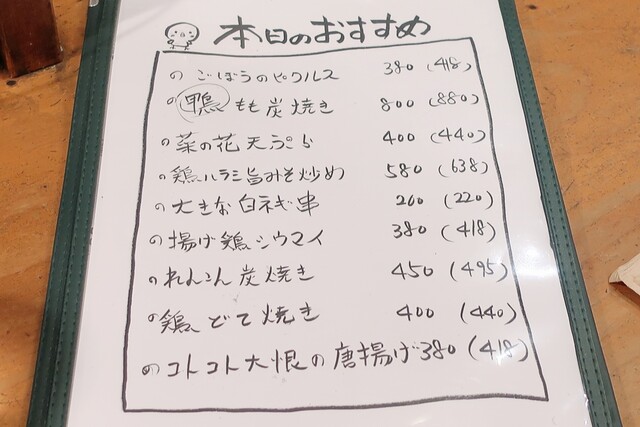 本日のおすすめ
の ごぼうのピクルス 380 (418)
の 鴨もも炭焼き 800 (880)
の 菜の花天ぷら 400 (440)
の 鶏ハラミ旨みそ炒め 580 (638)
の 大きな白ネギ串 200 (220)
の 揚げ鶏シウマイ 380 (418)
の れんこん炭焼き 450 (495)
の 鶏どて焼き 400 (440)
の コトコト大根の唐揚げ 380 (418)